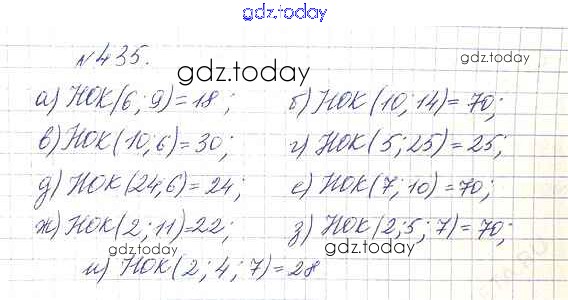 gdz.today
№435.
gdz.today
gdz.today
а) НОК(6; 9)=18; б) НОК(10; 14)=70;
в) НОК(10; 6)=30; г) НОК(5; 25)=25;
д) НОК(24; 6)=24; е) НОК(7; 10)=70;
ж) НОК(2; 11)=22; з) НОК(2; 5; 7)=70;
gdz.today
gdz.today
и) НОК(2; 4; 7)=28